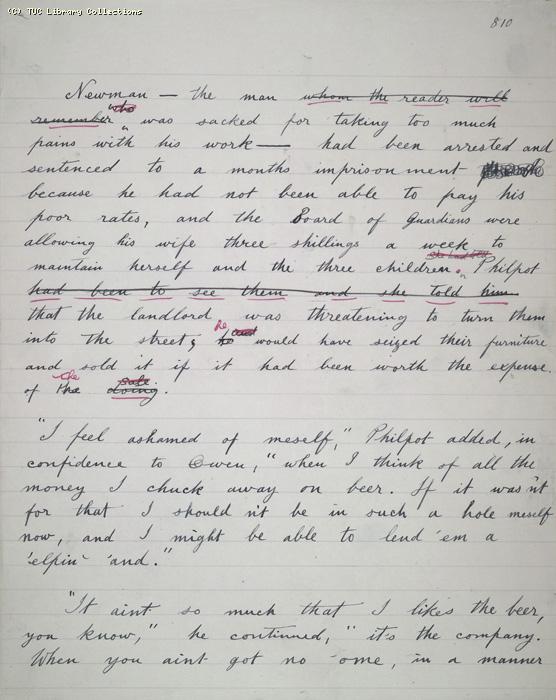 (C) TUC Library Collections
810
Newman — the man whom the reader will
who
remember was sacked for taking too much
pains with his work — had been arrested and
sentenced to a months imprisonment
because he had not been able to pay his
poor rates, and the Board of Guardians were
allowing his wife three shillings a week to
she had told
maintain herself and the three children. Philpot
had been to see them and she told him
that the landlord was threatening to turn them
He
into the street; he would have seized their furniture
and sold it if it had been worth the expense
the sale
of the doing.
"I feel ashamed of meself," Philpot added, in
confidence to Owen, "when I think of all the
money I chuck away on beer. If it was'nt
for that I should n't be in such a hole meself
now, and I might be able to lend 'em a
'elpin' 'and."
"It aint so much that I likes the beer,
you know," he continued, "it's the company.
When you aint got no 'ome, in a manner